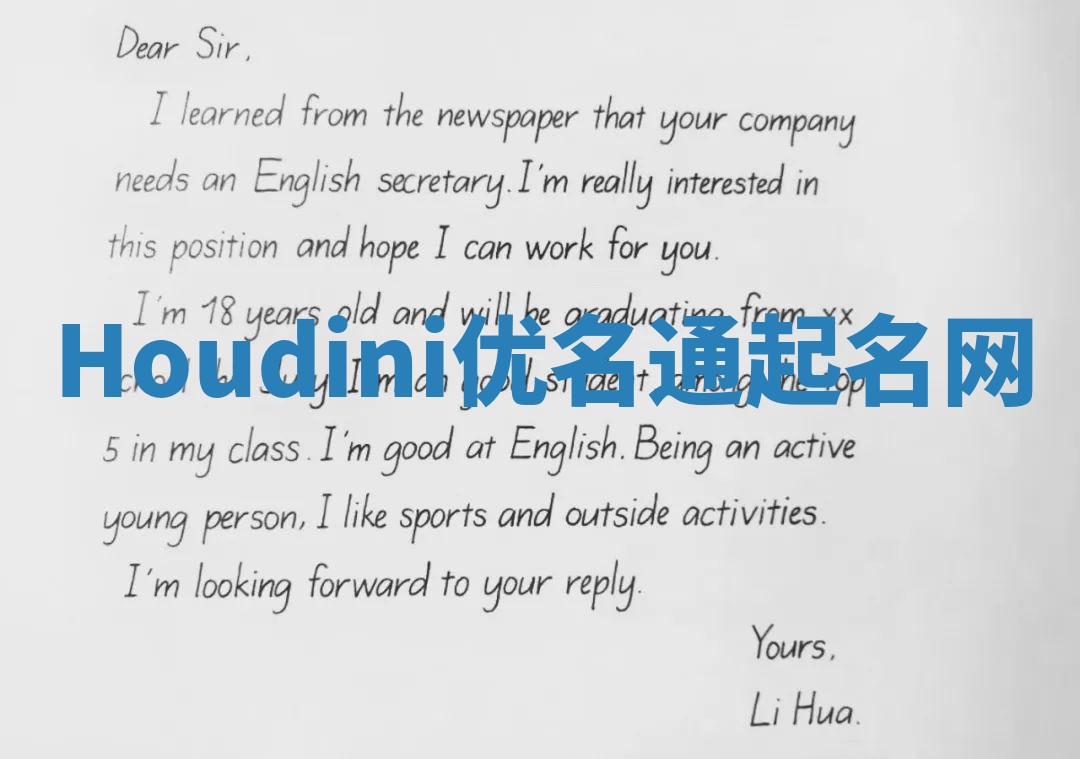 Dear Sir,
I learned from the newspaper that your company
needs an English secretary. I'm really interested in
this position and hope I can work for you.
I'm 18 years old and will be graduating from xx
Houdini优名通起名网
I'm an good student, among the top
5 in my class. I'm good at English. Being an active
young person, I like sports and outside activities.
I'm looking forward to your reply.
Yours,
Li Hua.